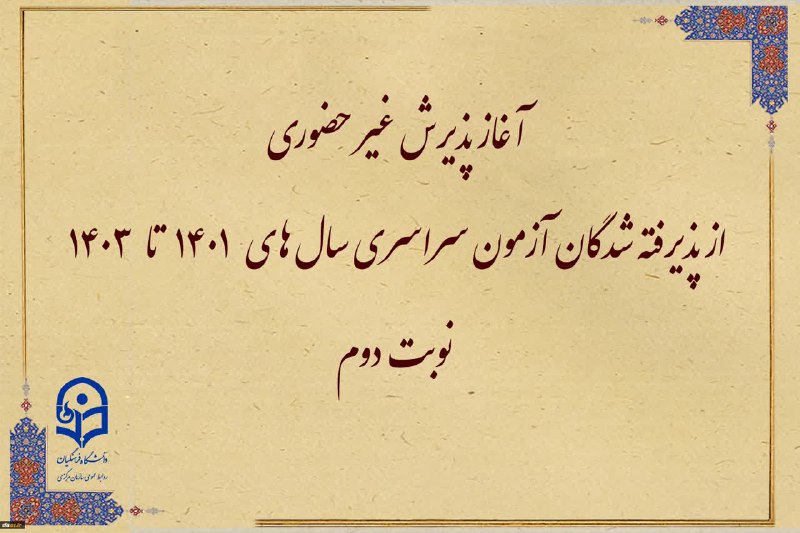 آغاز پذیرش غیر حضوری
از پذیرفته شدگان آزمون سراسری سال های ۱۴۰۱ تا ۱۴۰۳
نوبت دوم
دانشگاه فرهنگیان
روابط عمومی سازمان مرکزی